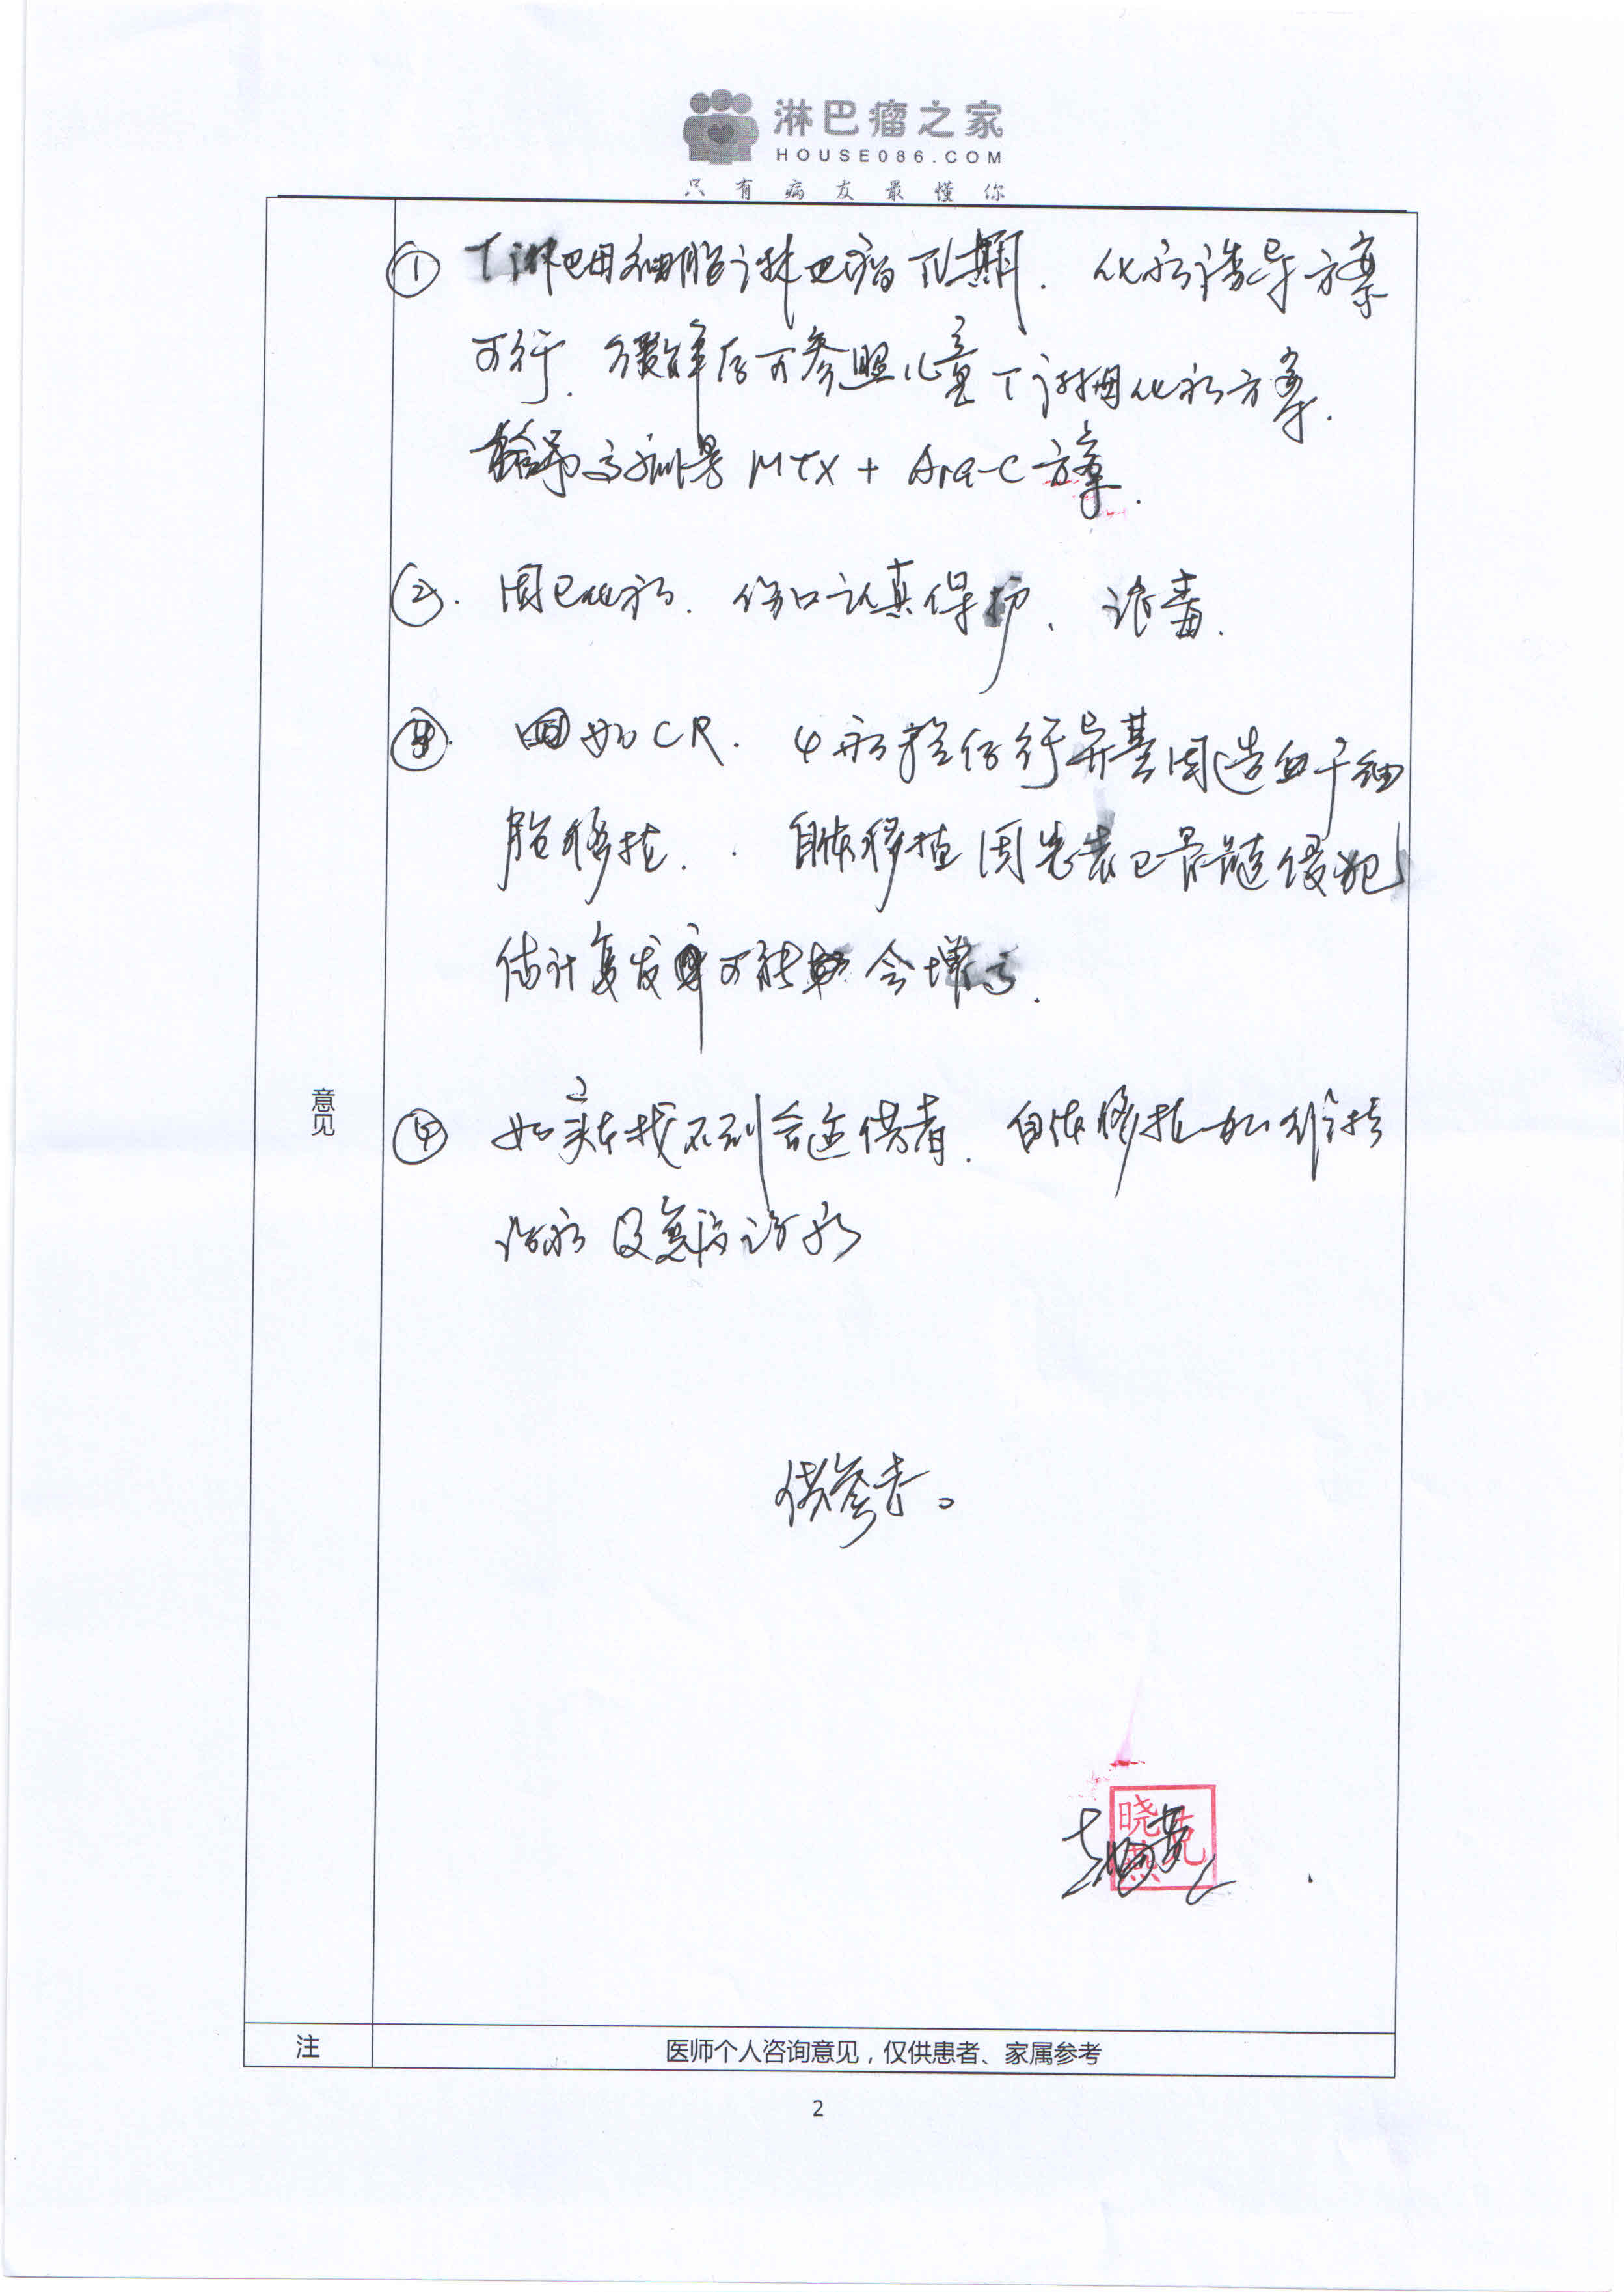 淋巴瘤之家
HOUSE086.COM
只有病友最懂你
① T淋巴母细胞淋巴瘤IV期. 化疗诱导方案
可行. 缓解后可参照儿童T淋母化疗方案.
给予高剂量 MTX + Ara-C 方案.
②. 因已化疗. 伤口认真保护、消毒.
如CR. 4疗程后行异基因造血干细
胞移植. 自体移植因先表已骨髓侵犯
估计复发率可能会增高.
意见
④ 如实在找不到合适供者. 自体移植加维持
治疗及免疫治疗
供参考。
晓燕克
注
医师个人咨询意见，仅供患者、家属参考
2